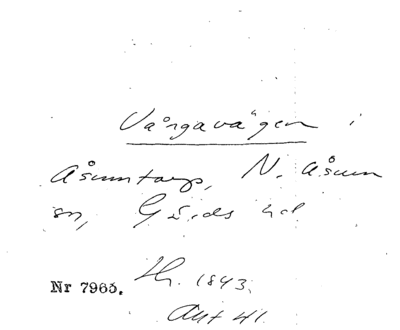 Vångavägen i
Åsumtorp, N. Åsum
sn, Gärds hd
Nr 7965. Th. 1843.
Akt 41.